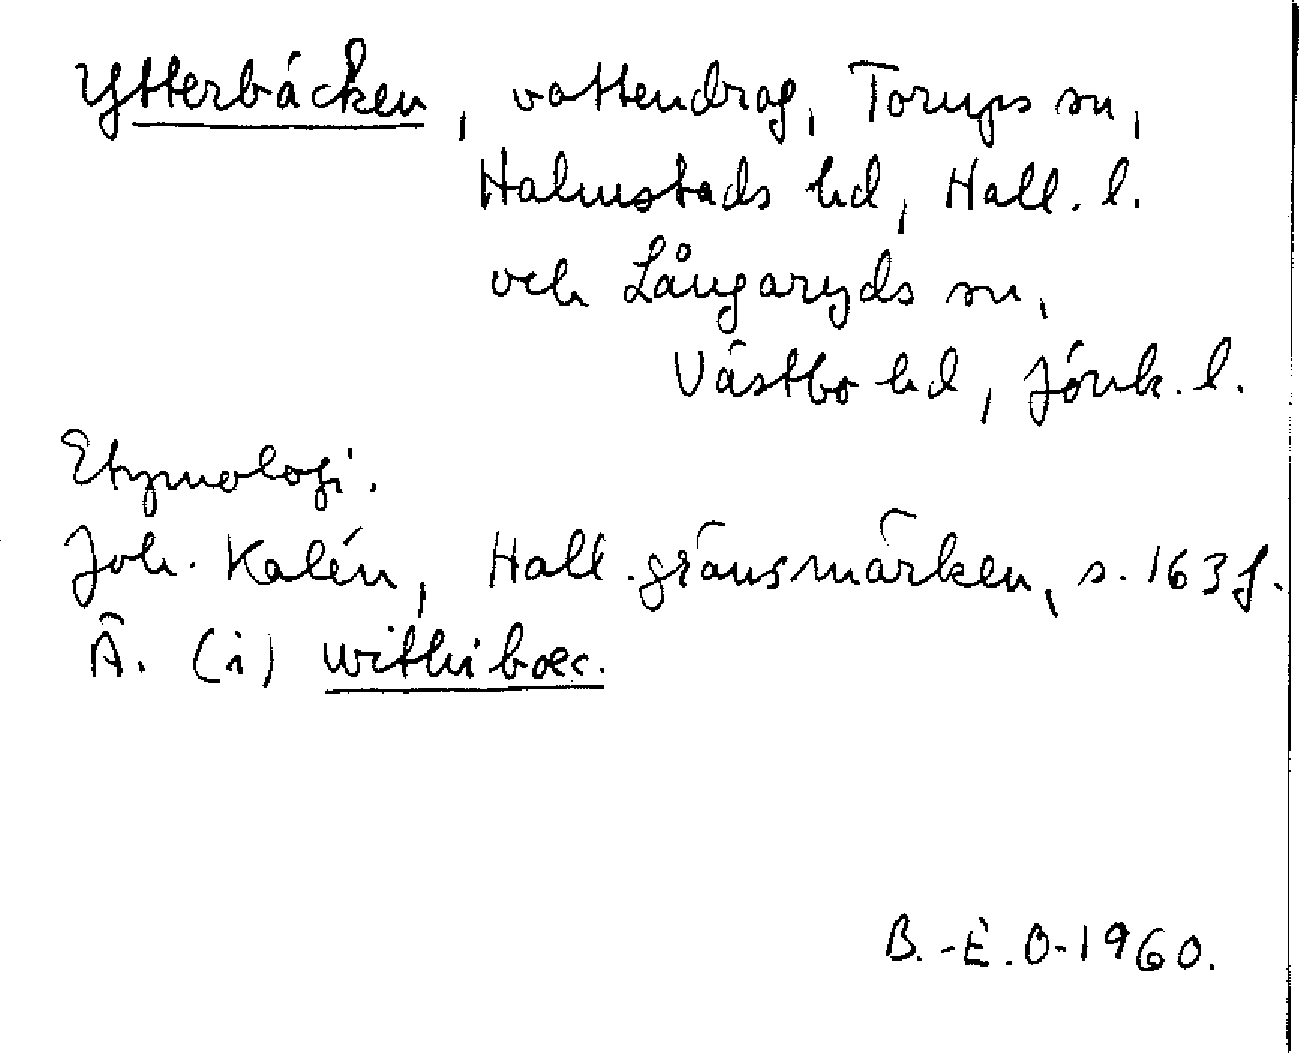 Ytterbäcken, vattendrag, Torups sn,
Halmstads hd, Hall. l.
och Långaryds sn,
Västbo hd, Jönk. l.
Etymologi.
Joh. Kalén, Hall. gränsmärken, s. 163 f.
Ä. (i) withi bæc.
B.-E. O-1960.